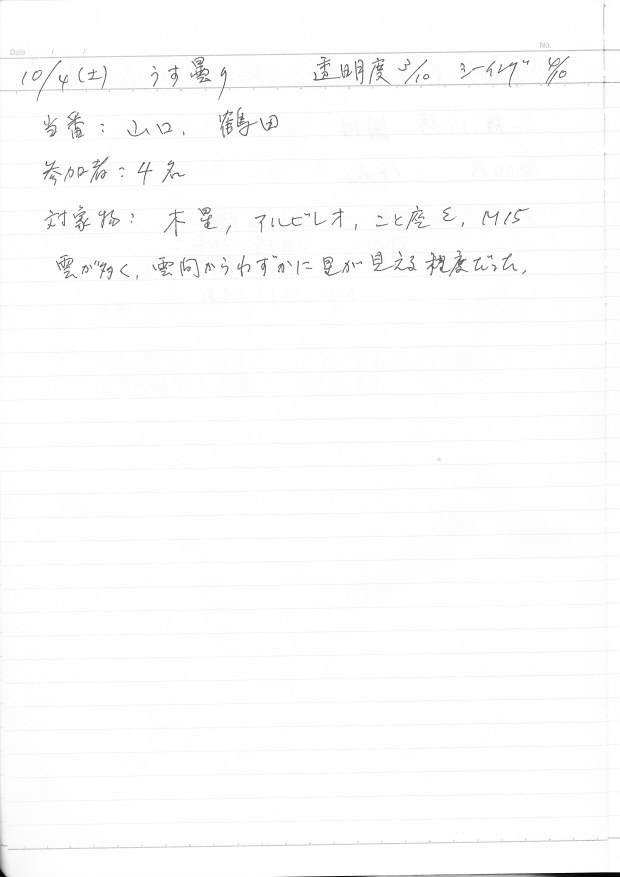 Date / / No.
10/4(土) うす曇り 透明度 3/10 シーイング 4/10
当番: 山口, 鶴田
参加者: 4名
対象物: 木星, アルビレオ, こと座ε, M15
雲が多く, 雲間からわずかに星が見える程度だった.